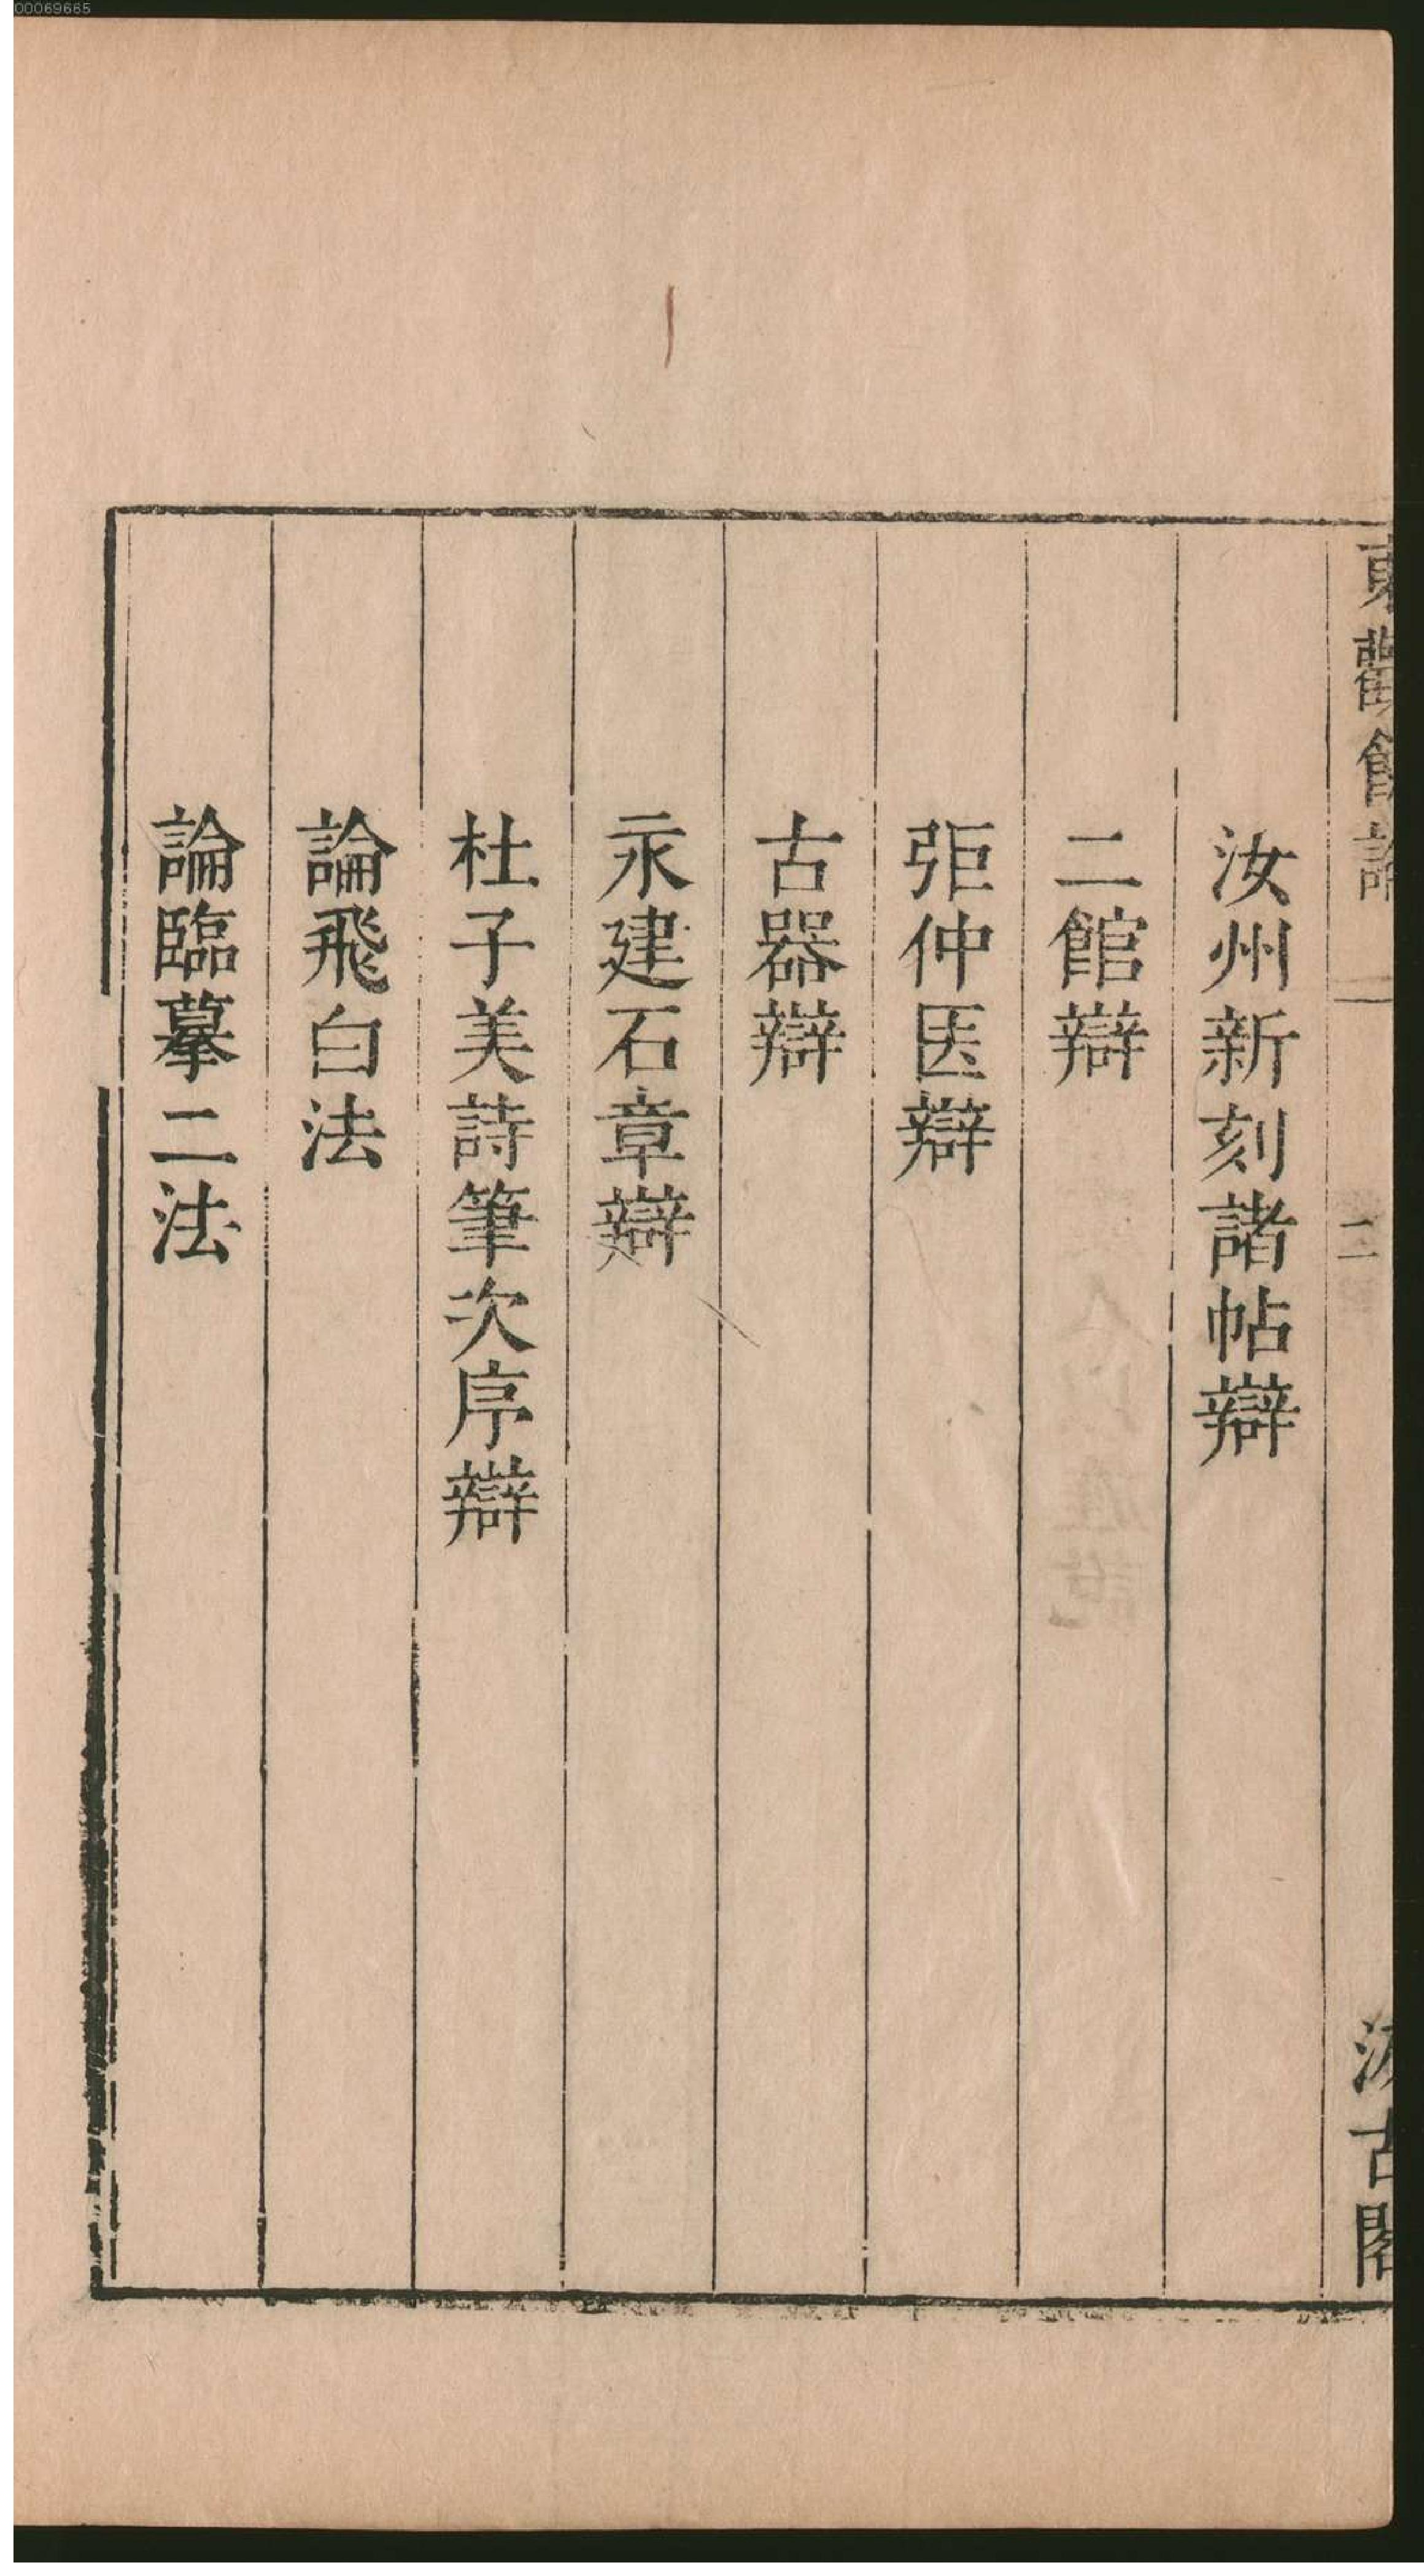 00069665
東觀餘論
二
汲古閣
汝州新刻諸帖辯
二館辯
弡仲医辯
古器辯
永建石章辯
杜子美詩筆次序辯
論飛白法
論臨摹二法